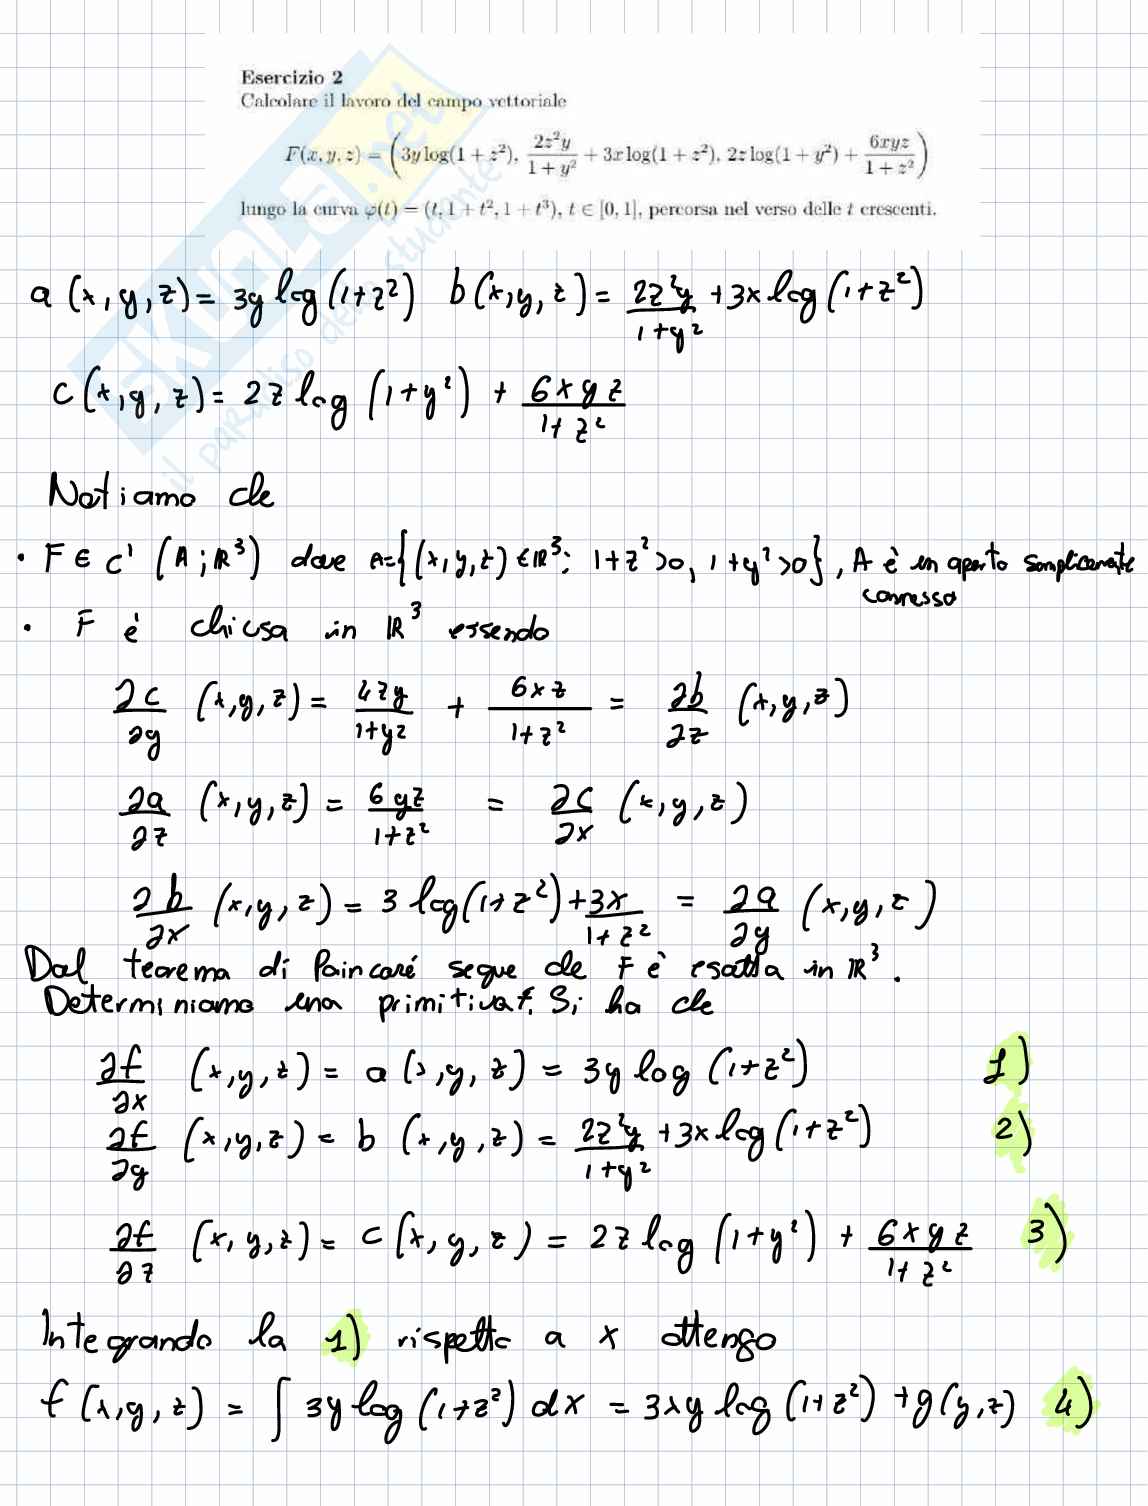 Esercizio 2
Calcolare il lavoro del campo vettoriale
F(x, y, z) = (3y log(1 + z²), 2z²y/(1 + y²) + 3x log(1 + z²), 2z log(1 + y²) + 6xyz/(1 + z²))
lungo la curva φ(t) = (t, 1 + t², 1 + t³), t ∈ [0, 1], percorsa nel verso delle t crescenti.
a (x, y, z) = 3y log(1+z²) b(x, y, z) = 2z²y/(1+y²) + 3x log(1+z²)
c(x, y, z) = 2z log(1+y²) + 6xyz/(1+z²)
Notiamo che
• F ∈ C¹ (A; ℝ³) dove A={(x, y, z) ∈ ℝ³: 1+z²>0, 1+y²>0}, A è un aperto semplicemente
connesso
• F è chiusa in ℝ³ essendo
∂c/∂y (x, y, z) = 4zy/(1+y²) + 6xz/(1+z²) = ∂b/∂z (x, y, z)
∂a/∂z (x, y, z) = 6yz/(1+z²) = ∂c/∂x (x, y, z)
∂b/∂x (x, y, z) = 3 log(1+z²) + 3x/(1+z²) = ∂a/∂y (x, y, z)
Dal teorema di Poincaré segue che F è esatta in ℝ³.
Determiniamo una primitiva f. Si ha che
∂f/∂x (x, y, z) = a (x, y, z) = 3y log(1+z²) 1)
∂f/∂y (x, y, z) = b (x, y, z) = 2z²y/(1+y²) + 3x log(1+z²) 2)
∂f/∂z (x, y, z) = c(x, y, z) = 2z log(1+y²) + 6xyz/(1+z²) 3)
Integrando la 1) rispetto a x ottengo
f (x, y, z) = ∫ 3y log(1+z²) dx = 3xy log(1+z²) + g(y, z) 4)
SKUOLA.net
il paradiso dello studente